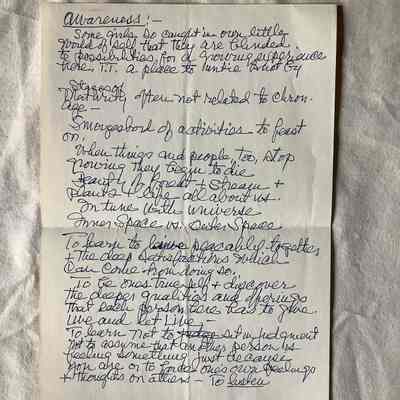 Awareness:-
Some girls, be caught in own little
world of self that they are blinded
to possibilities for a growing experience
here. T.T. a place to untie knot by
Stresses
Maturity often not related to chron-
age -
Smorgasbord of activities to feast
on.
When things and people, too, stop
growing they begin to die
Beauty of forest + stream +
plants + life all about us.
In tune with universe
Inner Space vs. Outer Space
To learn to live peacably together
+ the deep satisfactions which
can come from doing so.
To be ones true self + discover
the deeper qualities and offerings
that each person here has to give.
live and let live -
To learn not to judge sit in judgment
not to assume that another person is
feeling something just because
you are or to force ones own feelings
+ thoughts on others - To listen